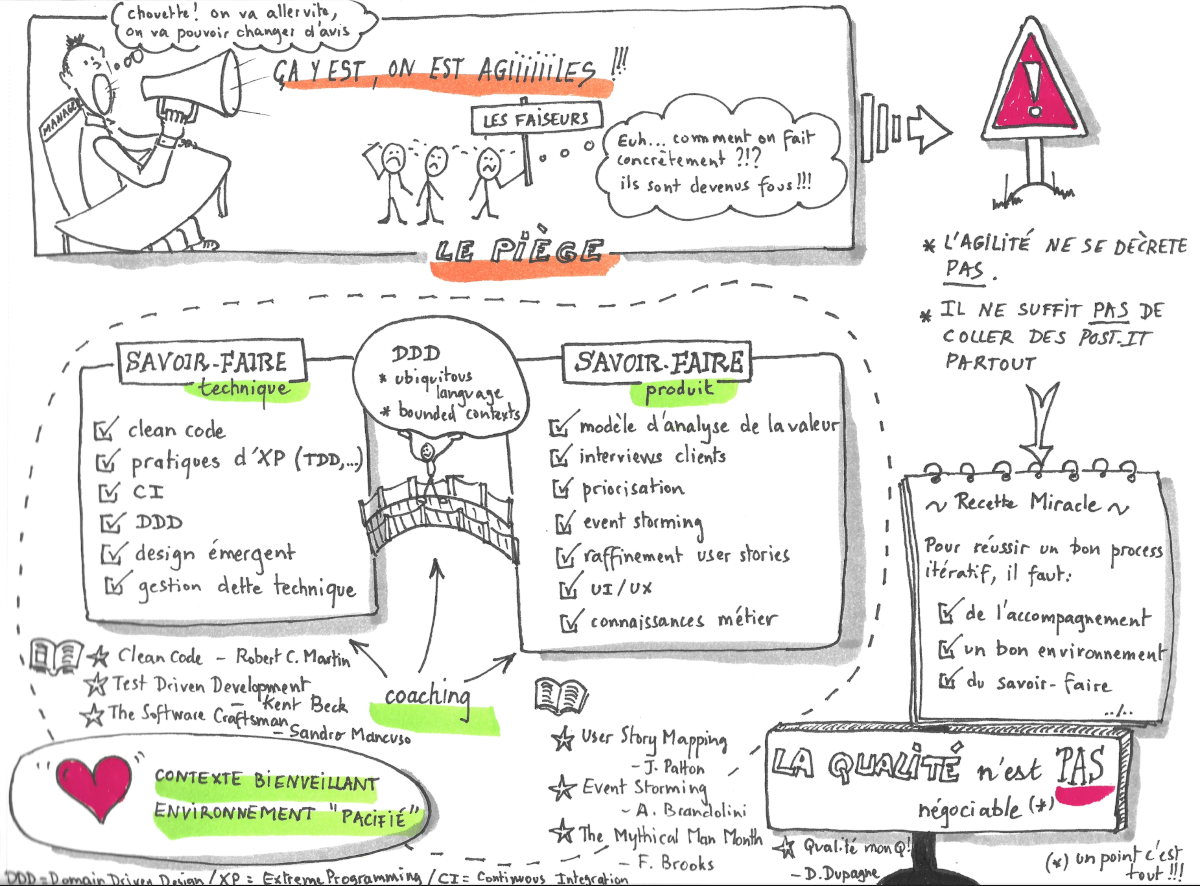 chouette! on va aller vite,
on va pouvoir changer d'avis
ÇA Y EST, ON EST AGiiiiiiLES !!!
MANAGER
LES FAISEURS
Euh... comment on fait
concrètement ?!?
ils sont devenus fous!!!
LE PIÈGE
* L'AGILITÉ NE SE DÈCRETE
PAS.
* IL NE SUFFIT PAS DE
COLLER DES POST-IT
PARTOUT
SAVOIR-FAIRE
technique
clean code
pratiques d'XP (TDD,...)
CI
DDD
design émergent
gestion dette technique
DDD
* ubiquitous
language
* bounded contexts
SAVOIR-FAIRE
produit
modèle d'analyse de la valeur
interviews clients
priorisation
event storming
raffinement user stories
UI/UX
connaissances métier
coaching
~ Recette Miracle ~
Pour réussir un bon process
itératif, il faut:
de l'accompagnement
un bon environnement
du savoir-faire
../..
Clean Code - Robert C. Martin
Test Driven Development
- Kent Beck
The Software Craftsman
- Sandro Mancuso
User Story Mapping
- J. Patton
Event Storming
- A. Brandolini
The Mythical Man Month
- F. Brooks
CONTEXTE BIENVEILLANT
ENVIRONNEMENT "PACIFIÉ"
LA QUALITÉ n'est PAS
négociable (*)
Qualité mon Q!
- D. Dupagne
(*) un point c'est
tout !!!
DDD = Domain Driven Design / XP = Extreme Programming / CI = Continuous Integration